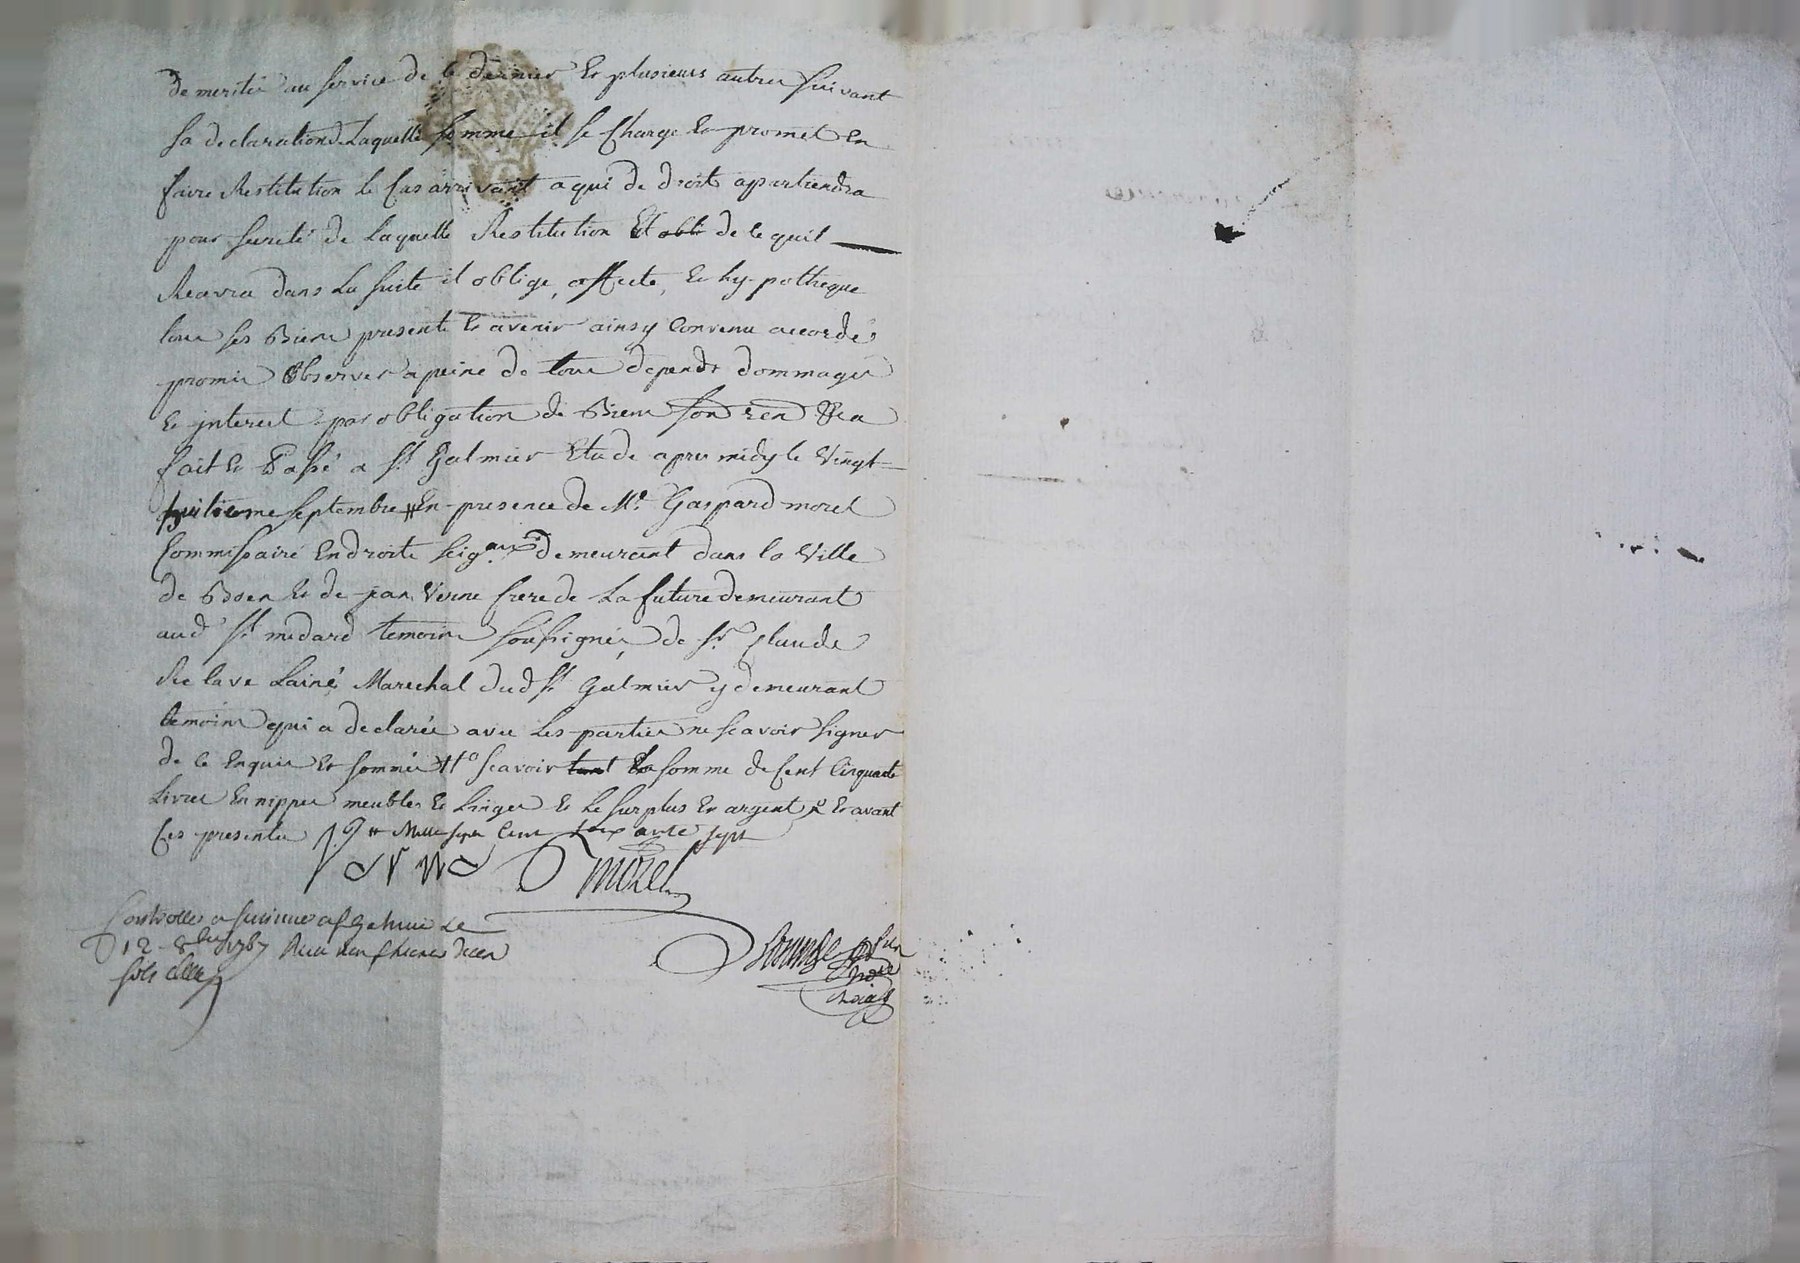 de merité au service de ce dernier et plusieurs autres suivant
sa declaration de Laquelle somme il se Charge et promet en
faire Restitution le Cas arrivant a qui de droit apartiendra
pour sureté de Laquelle Restitution Et obli de ce quil
Recevra dans La suite il oblige, affecte, et hypotheque
tous ses Biens presents et avenir ainsy Convenu accordé
promis Observer a peine de tous depends dommages
et interest par obligation de Biens
fait et Passé a St Galmier Etude apres midy le Vingt
huitieme septembre # En presence de Me Gaspard morel
Commissaire En droits seigaux demeurant dans la Ville
de Boen et de jean Verne frere de La future demeurant
aud St medard temoins soussignés, de Sr Claude
Lainé Marechal dud St Galmier y demeurant
temoins qui a declarée avec Les parties ne scavoir signer
de ce Enquis et sommés scavoir tant La somme de Cent Cinquante
Livres En nippes meubles et Linges et Le surplus En argent Et avant
Ces presentes # Mille sept Cent soixante sept
Verne morel
Controlle a St Galmier Le
12 8bre 1767 Recu
sols